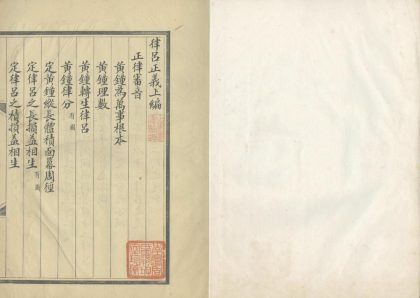 律呂正義上編
正律審音
黃鍾為萬事根本
黃鍾理數
黃鍾轉生律呂
黃鍾律分 有圖
定黃鍾縱長體積面冪周徑
定律呂之長損益相生 有圖
定律呂之積損益相生